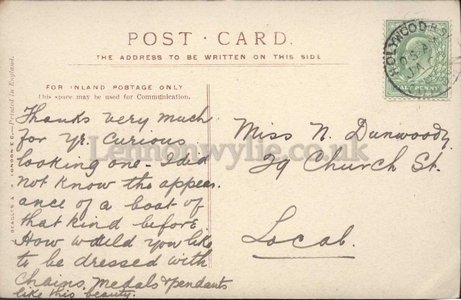 POST CARD.
THE ADDRESS TO BE WRITTEN ON THIS SIDE
FOR INLAND POSTAGE ONLY
This space may be used for Communication.
Thanks very much
for yr. curious
looking one - I did
not know the appear-
ance of a boat of
that kind before
How would you like
to be dressed with
Chains, Medals & pendants
like this beauty.
Miss N. Dunwoody
29 Church St.
Local.
HOLYWOOD
Printed in England.
LONDON E.C.
Lennonwylie.co.uk